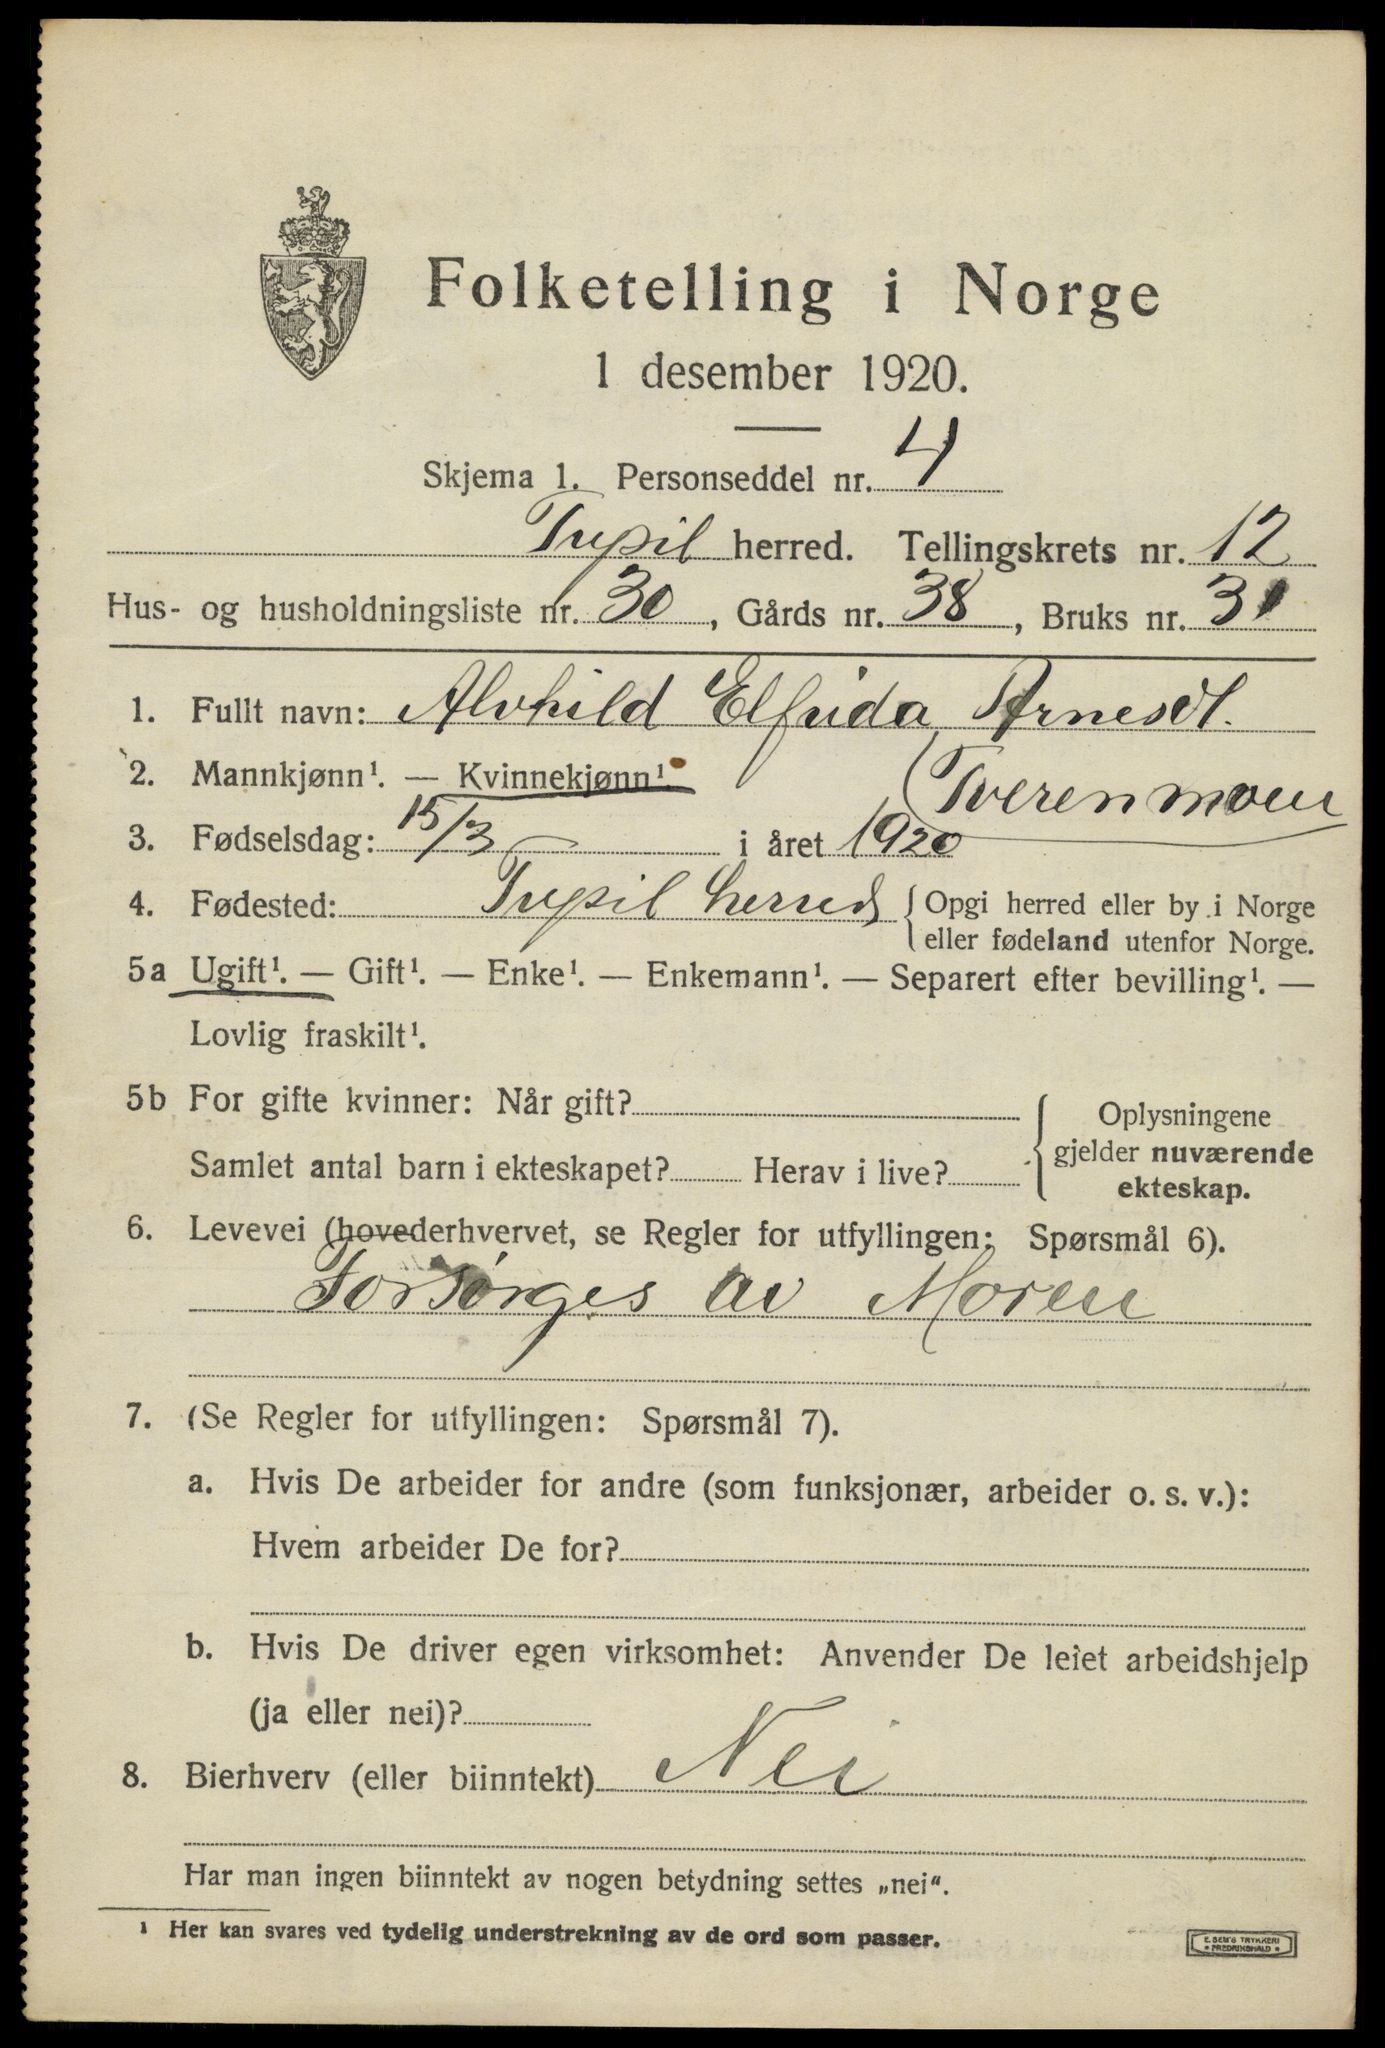 Folketelling i Norge
1 desember 1920.
Skjema 1. Personseddel nr. 4
Trysil herred. Tellingskrets nr. 12
Hus- og husholdningsliste nr. 30, Gårds nr. 38, Bruks nr. 31
1. Fullt navn: Alvhild Elfrida Arnesdt.
(Tverenmoen
2. Mannkjønn¹. — Kvinnekjønn¹.
3. Fødselsdag: 15/3 i året 1920
4. Fødested: Trysil herred { Opgi herred eller by i Norge
eller fødeland utenfor Norge.
5a Ugift¹. — Gift¹. — Enke¹. — Enkemann¹. — Separert efter bevilling¹. —
Lovlig fraskilt¹.
5b For gifte kvinner: Når gift? { Oplysningene
gjelder nuværende
ekteskap.
Samlet antal barn i ekteskapet? Herav i live?
6. Levevei (hovederhvervet, se Regler for utfyllingen: Spørsmål 6).
Forsørges av Moren
7. (Se Regler for utfyllingen: Spørsmål 7).
a. Hvis De arbeider for andre (som funksjonær, arbeider o. s. v.):
Hvem arbeider De for?
b. Hvis De driver egen virksomhet: Anvender De leiet arbeidshjelp
(ja eller nei)?
8. Bierhverv (eller biinntekt) Nei
Har man ingen biinntekt av nogen betydning settes „nei“.
¹ Her kan svares ved tydelig understrekning av de ord som passer.
E. SEM'S TRYKKERI
• FREDRIKSHALD •